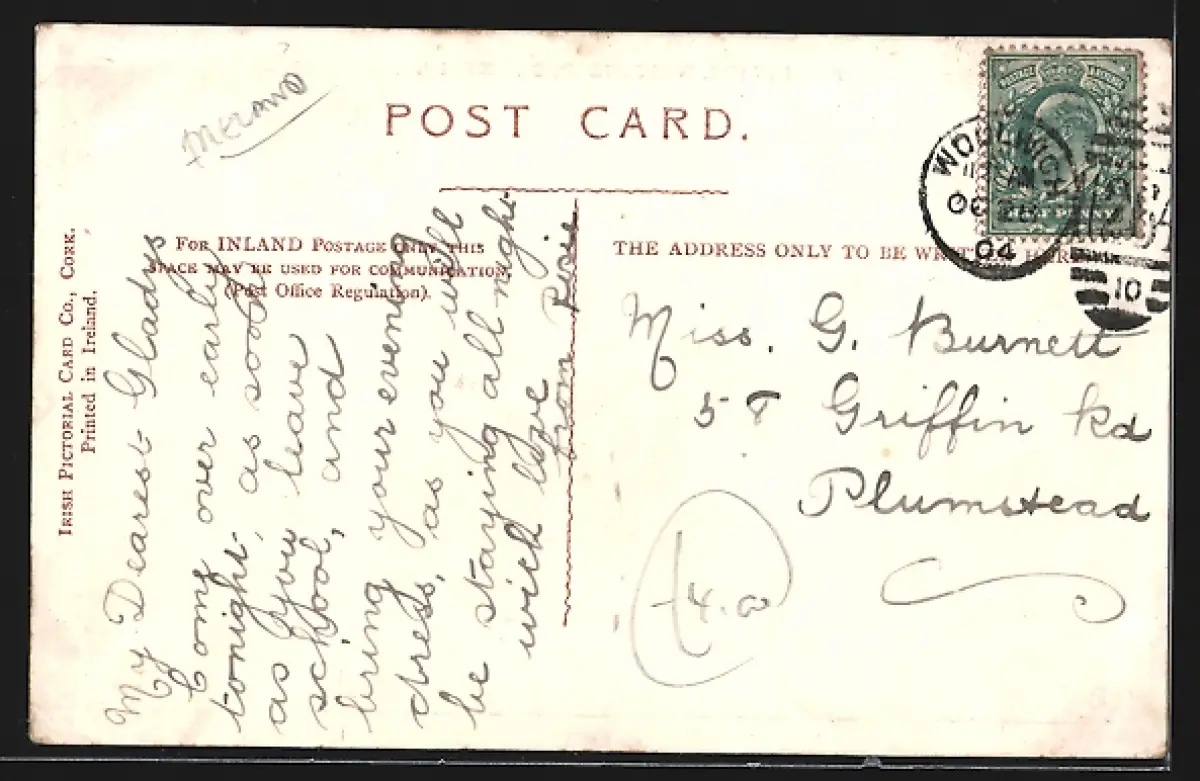 POST CARD.
FOR INLAND POSTAGE ONLY THIS
SPACE MAY BE USED FOR COMMUNICATION.
(Post Office Regulation).
THE ADDRESS ONLY TO BE WRITTEN HERE
IRISH PICTORIAL CARD Co., CORK.
Printed in Ireland.
My Dearest Gladys
Come over early
tonight, as soon
as you leave
school, and
bring your evening
dress, as you will
be staying all night
with love
from
Miss. G. Burnett
58 Griffin Rd
Plumstead
WOOLWICH
AM
OC 28
04
HALF PENNY
10
4.00